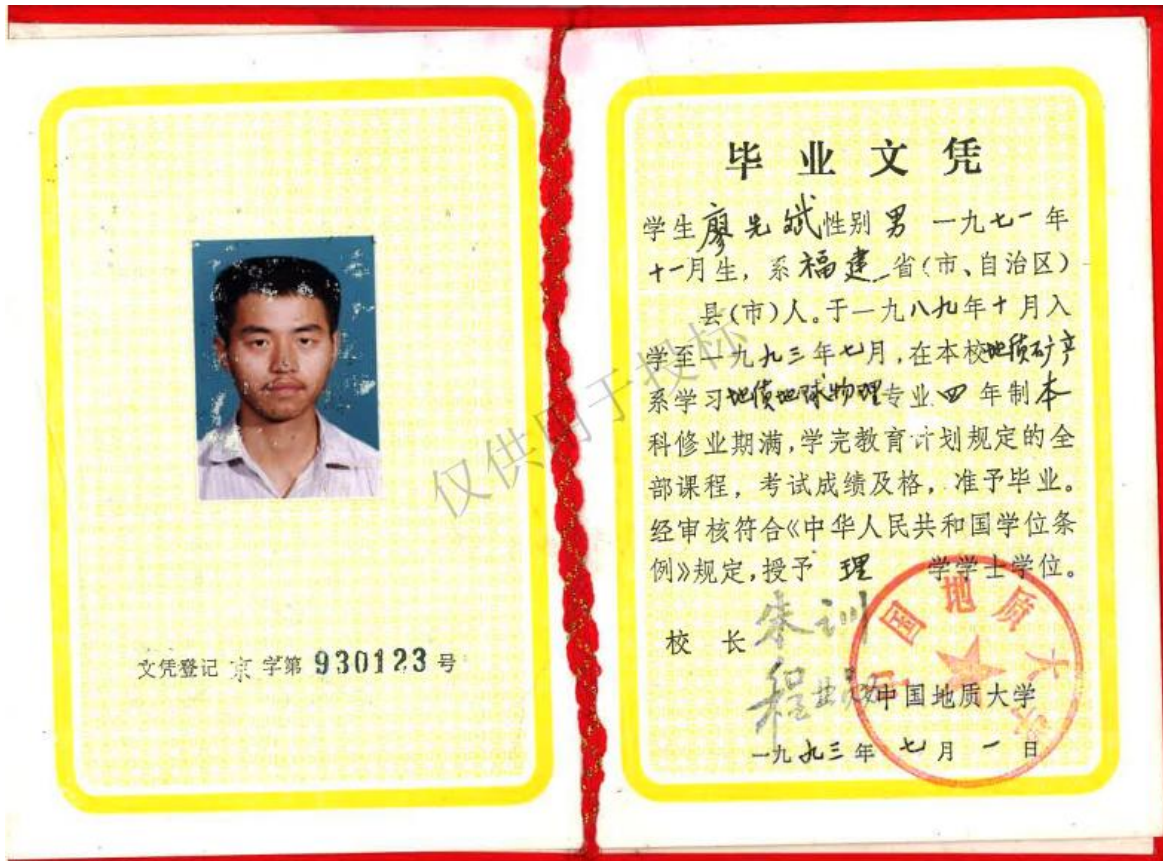 文凭登记 京 字第 930123 号
毕业文凭
学生廖先斌性别 男 一九七一年
十一月生，系福建 省(市、自治区)
县(市)人。于一九八九年十月入
学至一九九三年七月，在本校地质矿产
系学习地质地球物理专业四年制本
科修业期满，学完教育计划规定的全
部课程，考试成绩及格，准予毕业。
经审核符合《中华人民共和国学位条
例》规定，授予 理 学学士学位。
校 长 朱训
中国地质大学
一九九三年 七月 一 日
中国地质大学
仅供用于投标